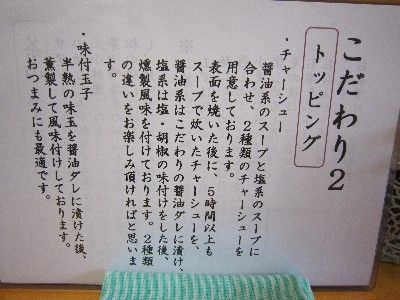 こだわり2
トッピング
・チャーシュー
醤油系のスープと塩系のスープに
合わせ、2種類のチャーシューを
用意しております。
表面を焼いた後に、5時間以上も
スープで炊いたチャーシューを、
醤油系はこだわりの醤油ダレに漬け、
※系は塩・胡椒の味付けをした後、
燻製風味を付けております。2種類
の違いをお楽しみ頂ければと思いま
す。
・味付玉子
半熟の味玉を醤油ダレに漬けた後、
薫製して風味付けしております。
おつまみにも最適です。